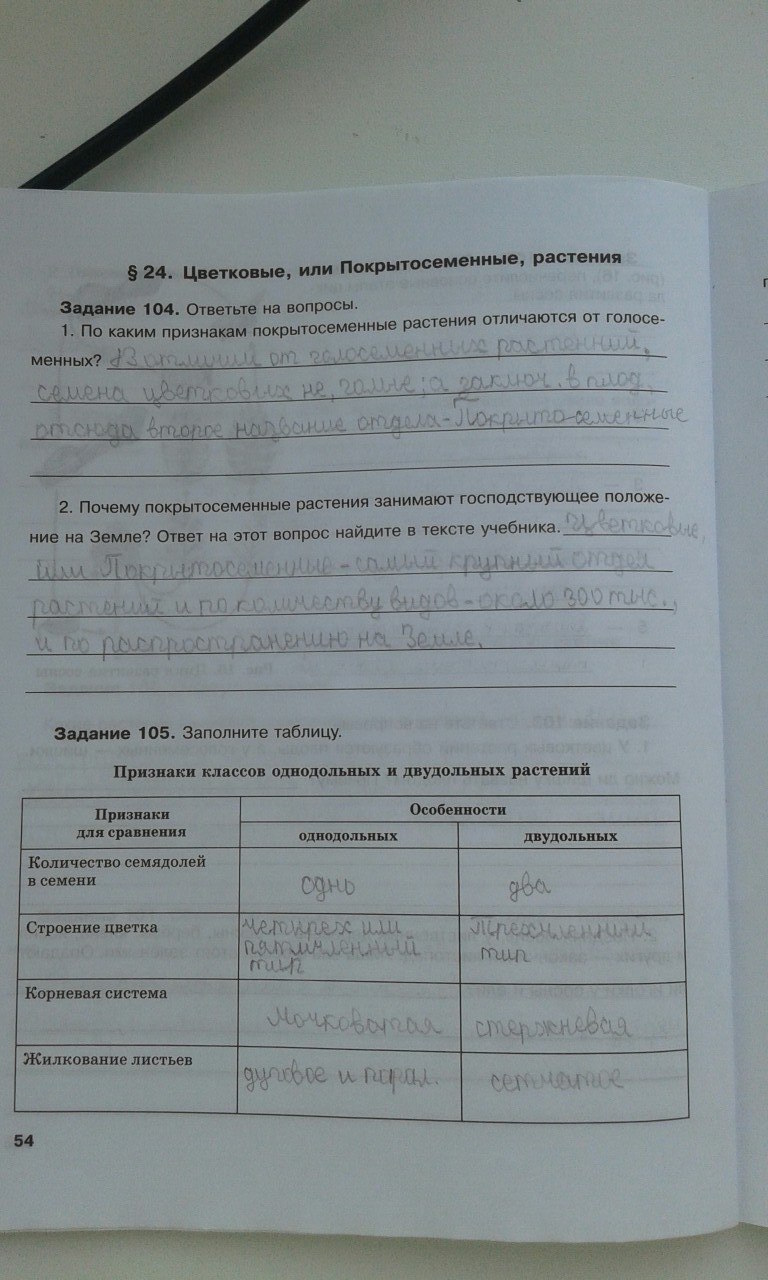 § 24. Цветковые, или Покрытосеменные, растения
Задание 104. Ответьте на вопросы.
1. По каким признакам покрытосеменные растения отличаются от голосе-
менных? В отличии от голосеменных растений,
семена цветковых не, голые; а заключ. в плод
отсюда второе название отдела-Покрыто-семенные
2. Почему покрытосеменные растения занимают господствующее положе-
ние на Земле? Ответ на этот вопрос найдите в тексте учебника. Цветковые,
или Покрытосеменные-самый крупный отдел
растений и по количеству видов-около 300 тыс.,
и по распространению на Земле.
Задание 105. Заполните таблицу.
Признаки классов однодольных и двудольных растений
Признаки
для сравнения
Особенности
однодольных
двудольных
Количество семядолей
в семени
одно
два
Строение цветка
четырех или
пятичленный
тип
Трехчленный
тип
Корневая система
Мочковатая
стержневая
Жилкование листьев
дуговое и парал.
сетчатое
54